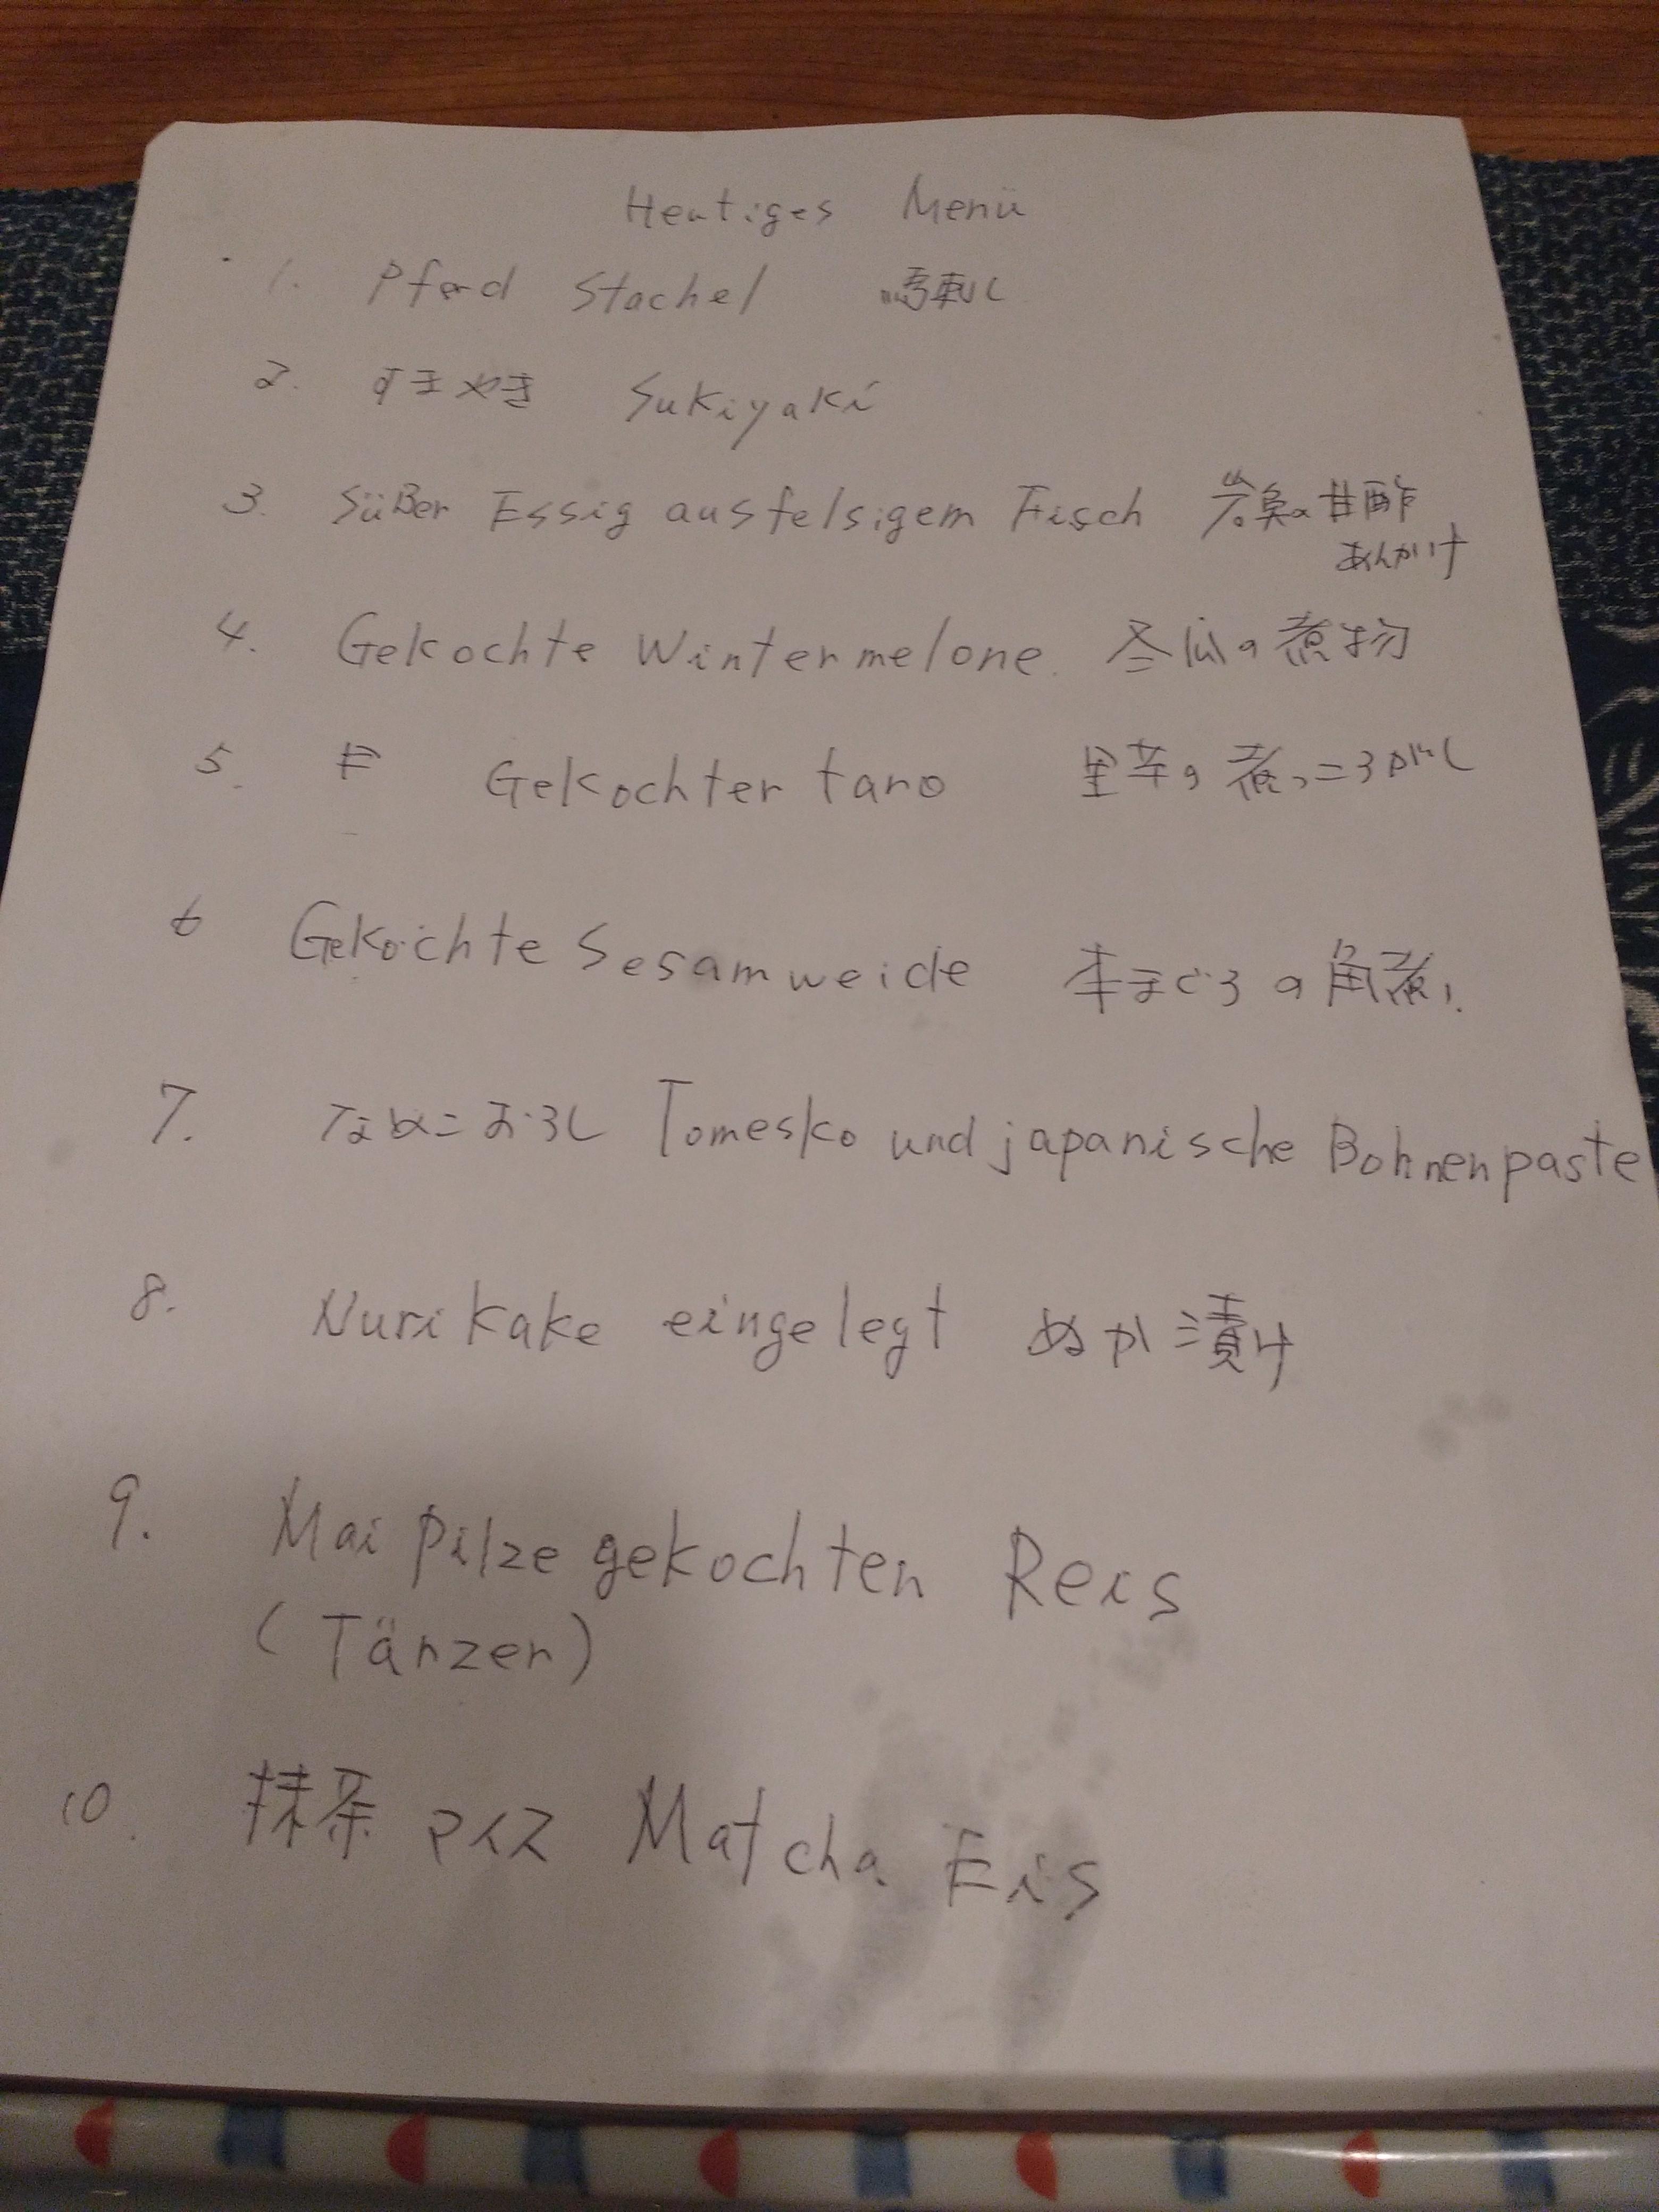 Heutiges Menü
1. Pferd Stachel 馬刺し
2. すきやき Sukiyaki
3. Süßer Essig ausfelsigem Fisch 岩魚の甘酢
あんかけ
4. Gekochte Wintermelone. 冬瓜の煮物
5. Gekochter taro 里芋の煮っころがし
6 Gekochte Sesamweide 本まぐろの角煮
7. なめこおろし Tomesko und japanische Bohnenpaste
8. Nurikake eingelegt ぬか漬け
9. Mai Pilze gekochten Reis
(Tänzer)
10. 抹茶アイス Matcha Eis